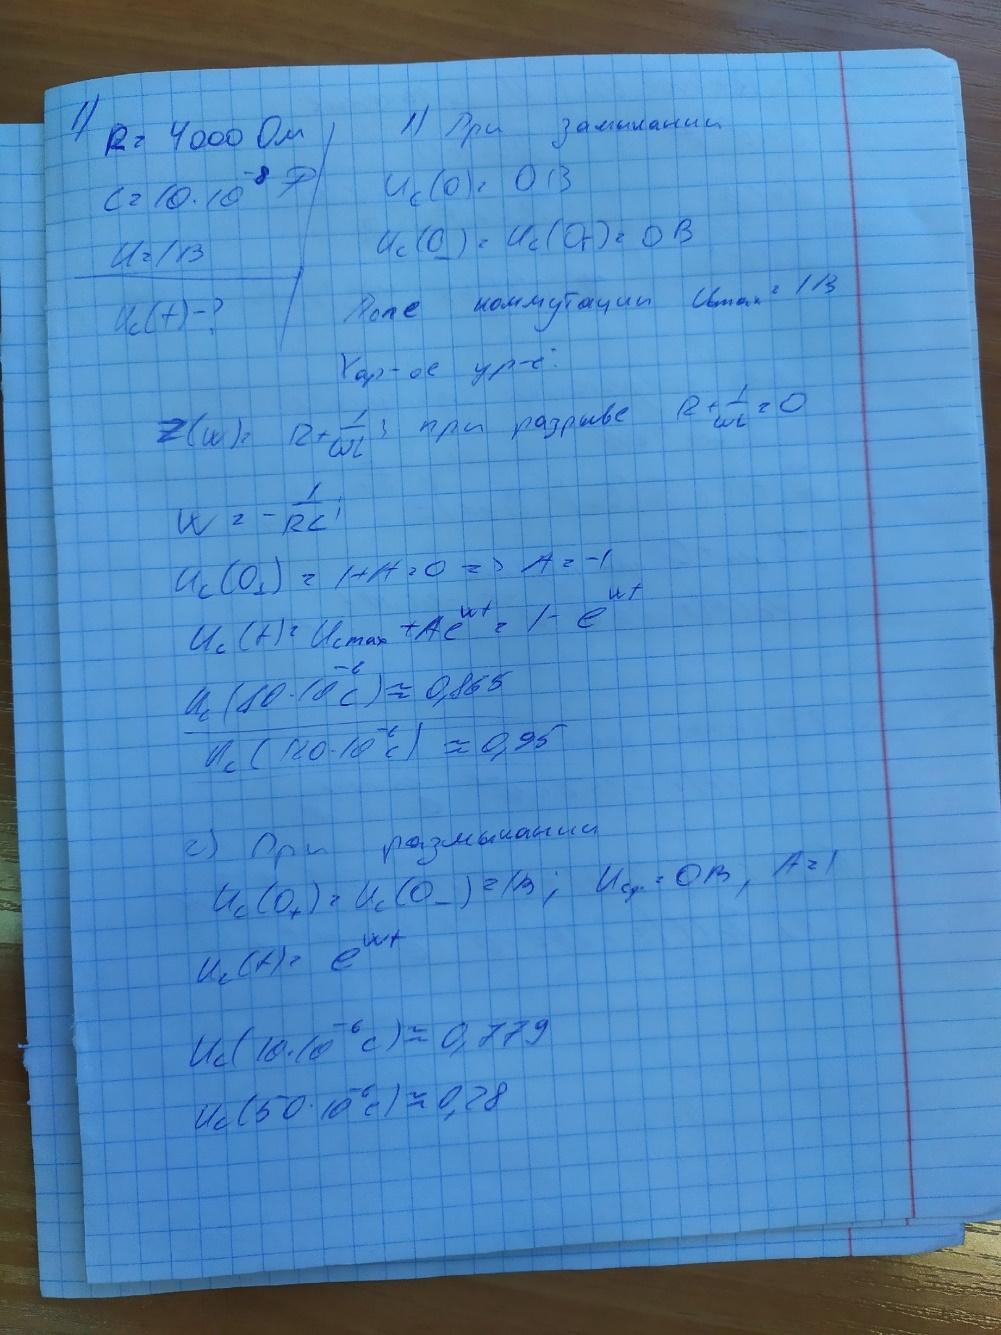 1)
R = 4000 Ом
C = 10·10⁻⁸ Ф
U = 1В
Uc(t) - ?
1) При замыкании
Uc(0) = 0 В
Uc(0_) = Uc(0+) = 0 В
После коммутации Uстах = 1В
Хар-ое ур-е:
Z(w) = R + 1/wc ; при разрыве R + 1/wc = 0
W = - 1/RC ;
Uc(0+) = 1 + A = 0 => A = -1
Uc(t) = Ucmax + Ae^wt = 1 - e^wt
Uc(80·10⁻⁶ c) ≈ 0,865
Uc(120·10⁻⁶ c) ≈ 0,95
2) При размыкании
Uc(0+) = Uc(0_) = 1В ; Ucу = 0В , A = 1
Uc(t) = e^wt
Uc(10·10⁻⁶ c) ≈ 0,779
Uc(50·10⁻⁶ c) ≈ 0,28